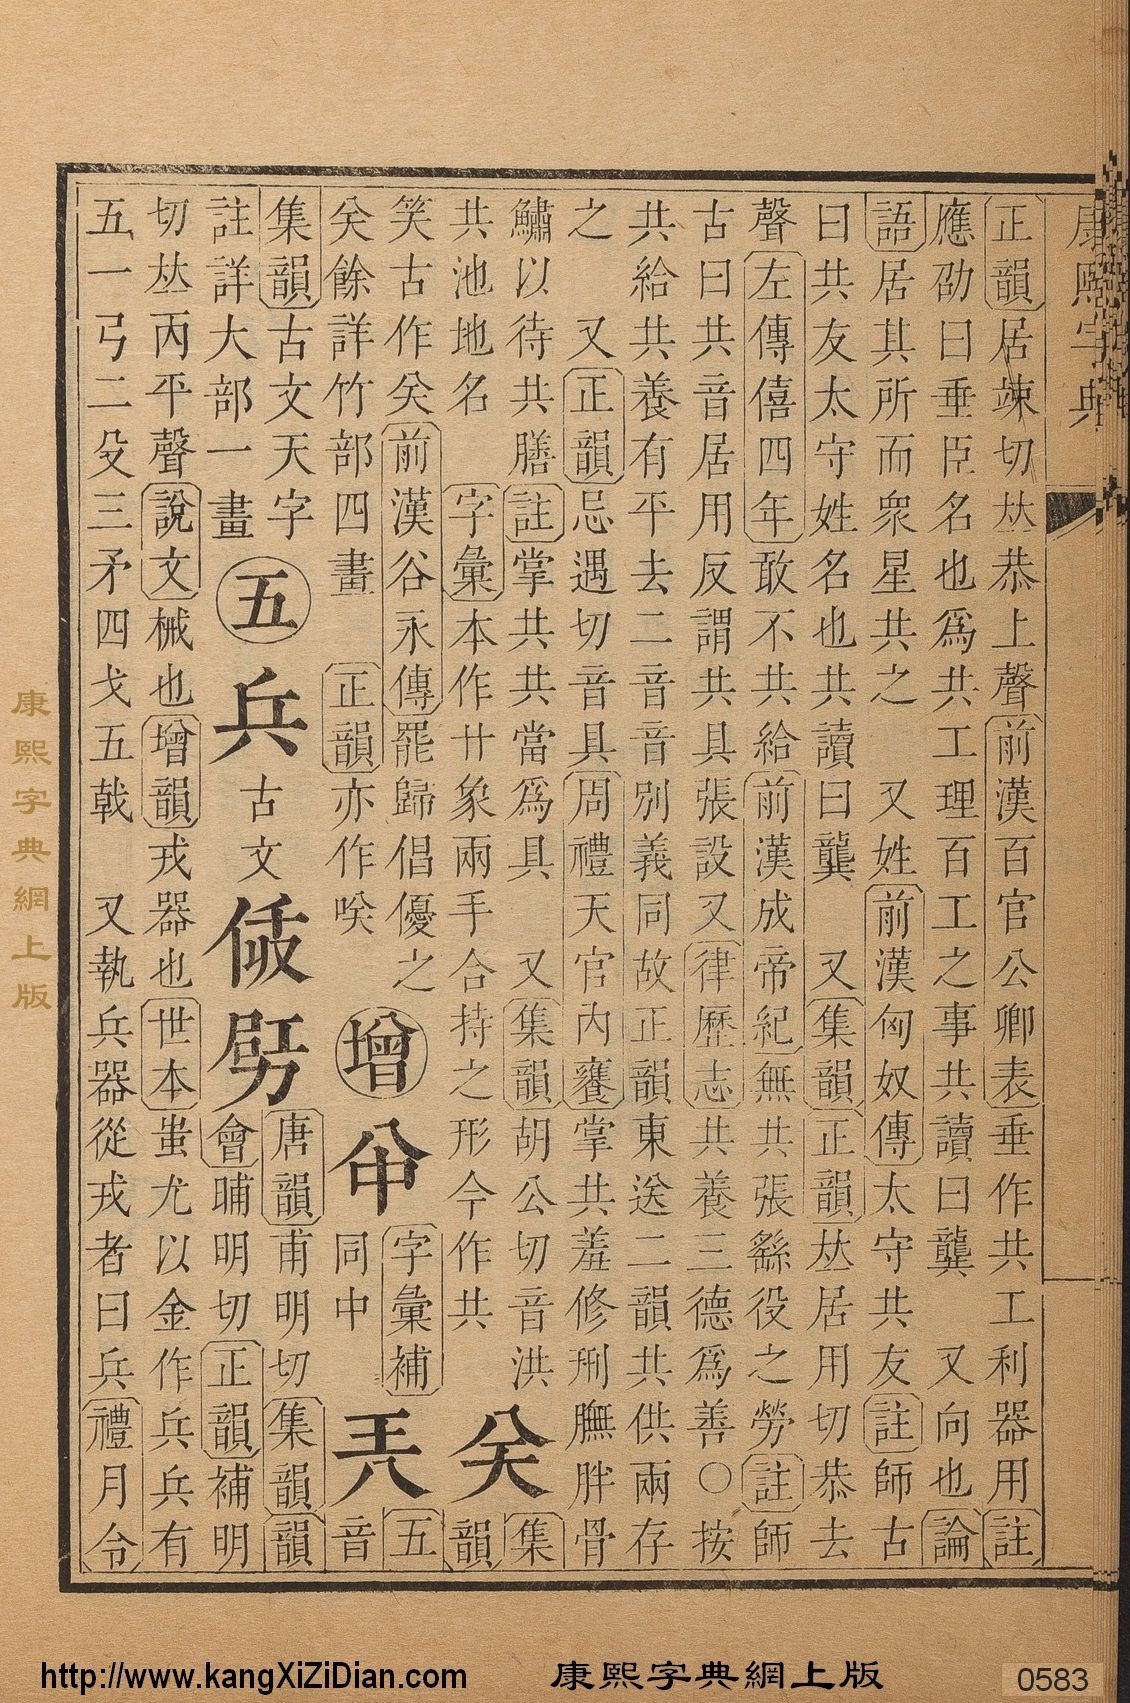 康熙字典
正韻居竦切𠀤恭上聲前漢百官公卿表垂作共工利器用註
應劭曰垂臣名也爲共工理百工之事共讀曰龔 又向也論
語居其所而眾星共之 又姓前漢匈奴傳太守共友註師古
曰共友太守姓名也共讀曰龔 又集韻正韻𠀤居用切恭去
聲左傳僖四年敢不共給前漢成帝紀無共張繇役之勞註師
古曰共音居用反謂共具張設又律歷志共養三德爲善〇按
共給共養有平去二音音別義同故正韻東送二韻共供兩存
之 又正韻忌遇切音具周禮天官內饔掌共羞修刑膴胖骨
鱐以待共膳註掌共共當爲具 又集韻胡公切音洪
共池地名 字彙本作廿象兩手合持之形今作共
关
集
韻
笑古作关前漢谷永傳罷歸倡優之
关餘詳竹部四畫 正韻亦作咲
增
字彙補
同中
兲
五
音
集韻古文天字
註詳大部一畫
五
兵
古文
𠈯
唐韻甫明切集韻韻
會晡明切正韻補明
切𠀤丙平聲說文械也增韻戎器也世本蚩尤以金作兵兵有
五一弓二殳三矛四戈五戟 又執兵器從戎者曰兵禮月令
康熙字典網上版
http://www.kangXiZiDian.com
康熙字典網上版
0583